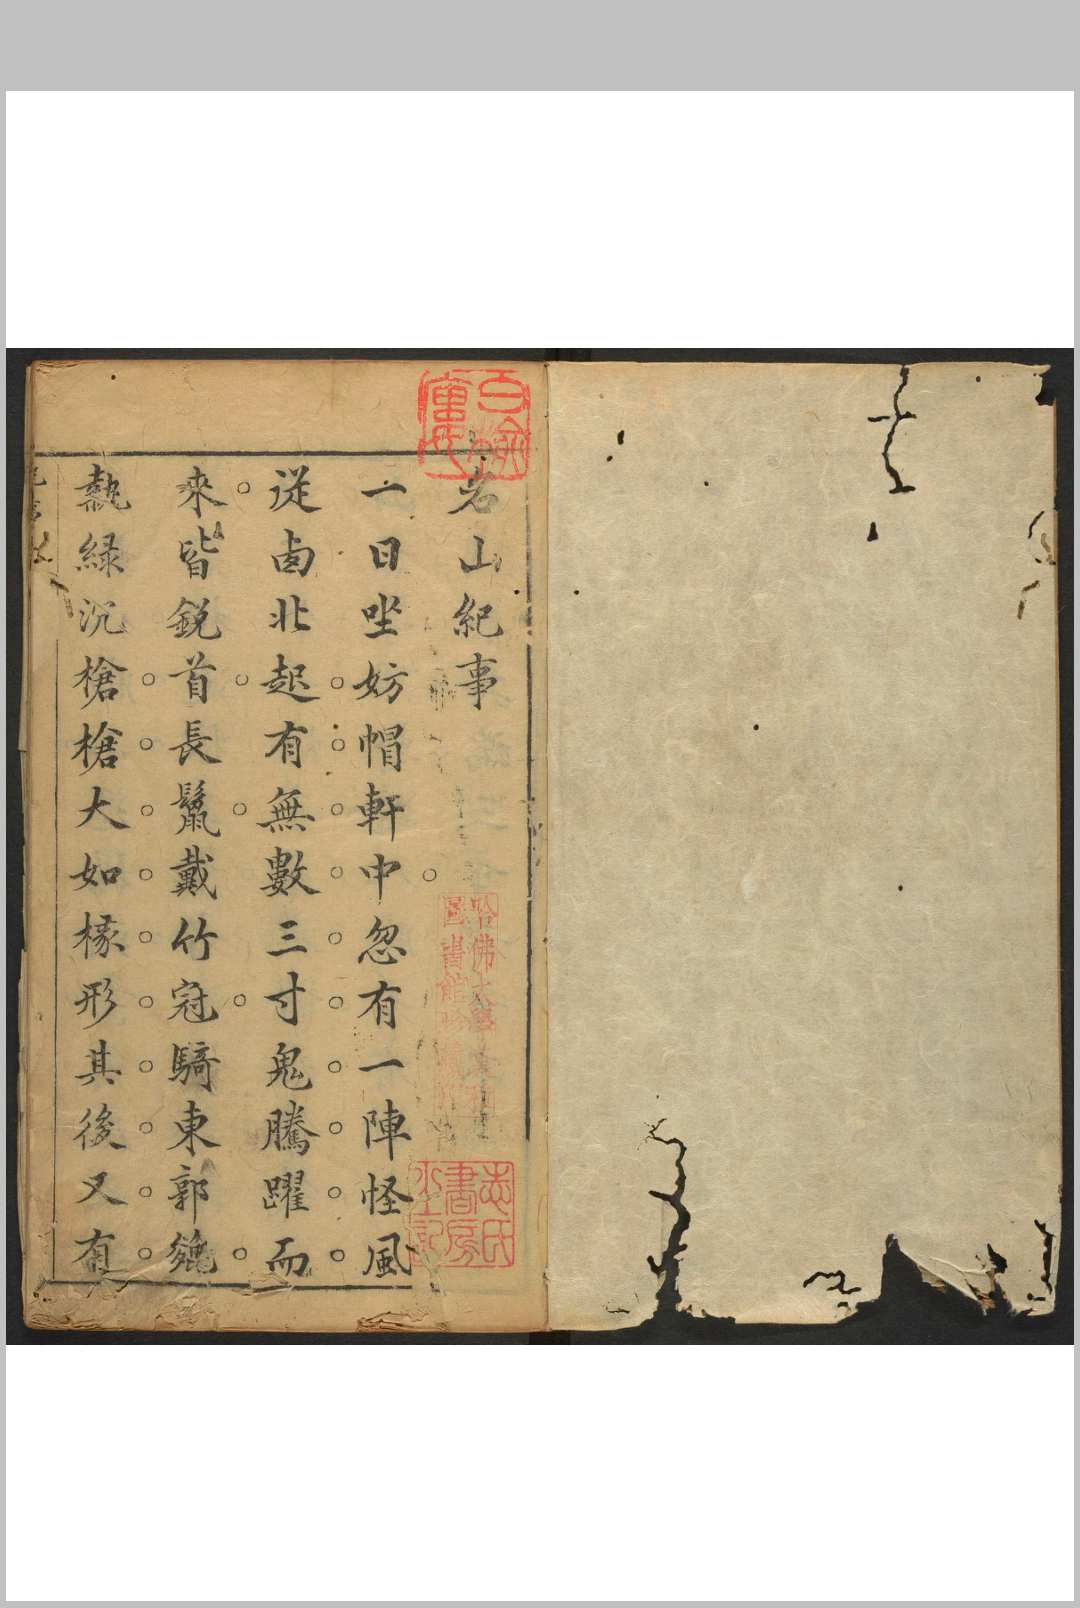 名山紀事
一日坐妨帽軒中忽有一陣怪風
從卤北起有無數三寸鬼騰躍而
來皆銳首長鬣戴竹冠騎東郭㕙
執緑沉槍槍大如椽形其後又有
哈佛大學
圖書館